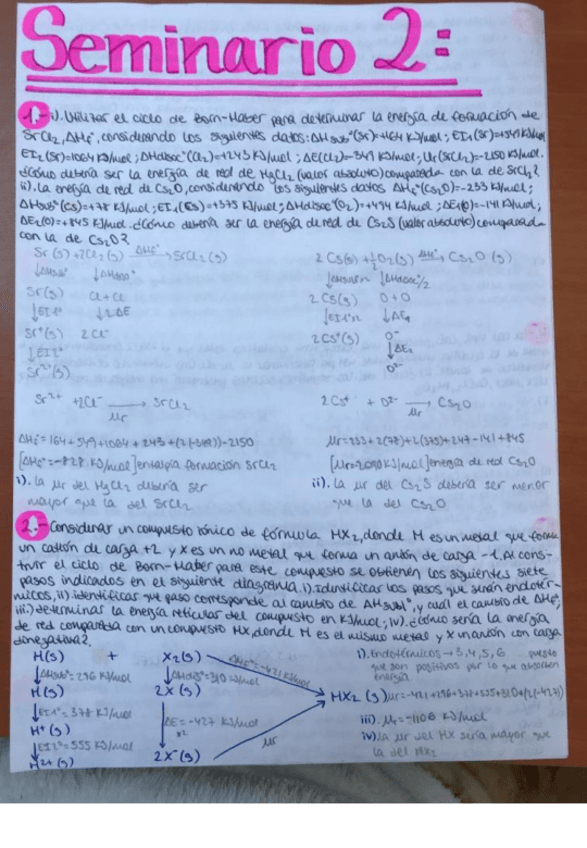 Seminario 2:
1.- i). Utilizar el ciclo de Born-Haber para determinar la energía de formación de
SrCl₂, ΔHf°, considerando los siguientes datos: ΔHsub°(Sr)=164 KJ/mol; EI₁(Sr)=+549 KJ/mol
EI₂(Sr)=1064 KJ/mol; ΔHdisoc°(Cl₂)=+243 KJ/mol; ΔE(Cl₂)=-349 KJ/mol; Ur(SrCl₂)=-2150 KJ/mol.
¿Cómo debería ser la energía de red de MgCl₂ (valor absoluto) comparada con la de SrCl₂?
ii). La energía de red de Cs₂O, considerando los siguientes datos ΔHf°(Cs₂O)=-233 KJ/mol;
ΔHsub°(Cs)=+78 KJ/mol; EI₁(Cs)=+375 KJ/mol; ΔHdisoc°(O₂)=+494 KJ/mol; ΔE₁(O)=-141 KJ/mol;
ΔE₂(O)=+845 KJ/mol. ¿Cómo debería ser la energía de red de Cs₂S (valor absoluto) comparada
con la de Cs₂O?
Sr(s) + Cl₂(g) ΔHf° → SrCl₂(s)
↓ΔHsub° ↓ΔHdiso°
Sr(g) Cl + Cl
↓EI1° ↓2ΔE
Sr⁺(g) 2Cl⁻
↓EI2°
Sr²⁺(g)
Sr²⁺ + 2Cl⁻ → SrCl₂
Ur
ΔHf=164+549+1064+243+(2(-349))-2150
[ΔHf°=-828 KJ/mol] entalpía formación SrCl₂
i). La Ur del MgCl₂ debería ser
mayor que la del SrCl₂
2 Cs(s) + ½O₂(g) ΔHf° → Cs₂O (s)
↓ΔHsub°x2 ↓ΔHdisoc/2
2 Cs(g) O + O
↓EI1°x2 ↓ΔE₁
2 Cs⁺(g) O⁻
↓ΔE₂
O²⁻
2Cs⁺ + O²⁻ → Cs₂O
Ur
Ur=233+2(78)+2(375)+247-141+845
[Ur=2090 KJ/mol] energía de red Cs₂O
ii). La Ur del Cs₂S debería ser menor
que la del Cs₂O
2.- Considerar un compuesto iónico de fórmula MX₂, donde M es un metal que forma
un catión de carga +2 y X es un no metal que forma un anión de carga -1. Al cons-
truir el ciclo de Born-Haber para este compuesto se obtienen los siguientes siete
pasos indicados en el siguiente diagrama. i). Identificar los pasos que serán endotér-
micos, ii) identificar que paso corresponde al cambio de ΔHsubl°, y cuál el cambio de ΔHf°,
iii) determinar la energía reticular del compuesto en KJ/mol, iv). ¿Cómo sería la energía
de red comparada con un compuesto MX, donde M es el mismo metal y X un anión con carga
dinegativa?
M(s) + X₂(g) ΔHf°=-421 KJ/mol
↓ΔHsub°=296 KJ/mol ↓ΔHdis°=310 KJ/mol
M(g) 2X(g)
↓EI1°=377 KJ/mol
M⁺(g)
↓EI2°=555 KJ/mol
M2+(g)
↓ΔE=-427 KJ/mol
x2
2X⁻(g)
Ur
MX₂ (s)
i). Endotérmicos → 3,4,5,6 puesto
que son positivos por lo que absorben
energía
iii). Ur=-1106 KJ/mol
iv) La Ur del MX sería mayor que
la del MX₂